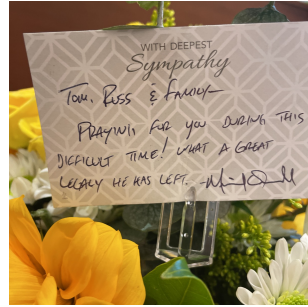 WITH DEEPEST
Sympathy
TOM, RUSS & FAMILY—
PRAYING FOR YOU DURING THIS
DIFFICULT TIME! WHAT A GREAT
LEGACY HE HAS LEFT.